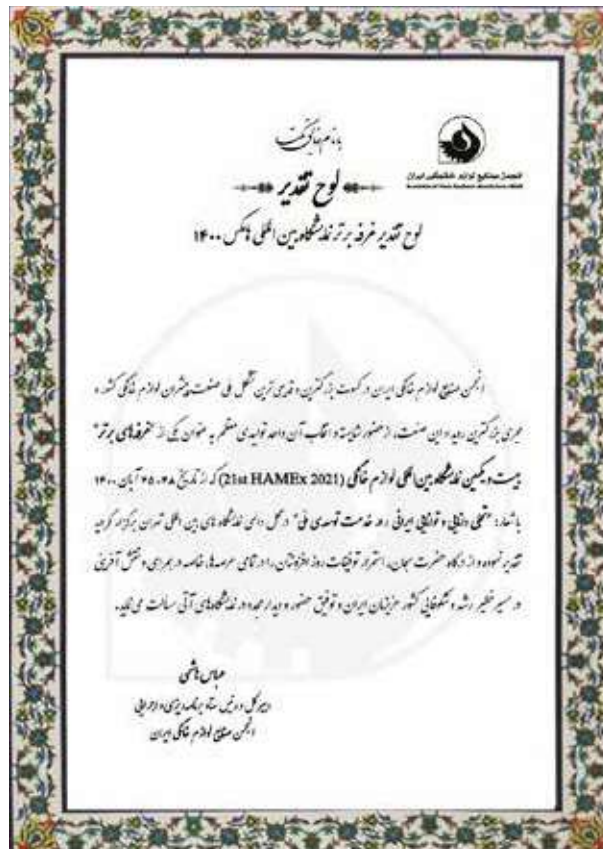 با نام خالق یکتا
انجمن صنایع لوازم خانگی ایران
لوح تقدیر
لوح تقدیر غرفه برتر نمایشگاه بین المللی هامکس ۱۴۰۰
انجمن صنایع لوازم خانگی ایران در کسوت بزرگترین و قدیمی ترین تشکل ملی صنعت پیشران لوازم خانگی کشور و
مجری بزرگترین رویداد این صنعت، از حضور شایسته و انتخاب آن واحد تولیدی معظم به عنوان یکی از "غرفه های برتر"
بیست و یکمین نمایشگاه بین المللی لوازم خانگی (21st HAMEx 2021) که از تاریخ ۲۵ آبان ۱۴۰۰
با شعار: "تجلی دانایی و توانایی ایرانی در خدمت توسعه ی ملی" در محل دائمی نمایشگاه های بین المللی تهران برگزار گردید
تقدیر نموده و از درگاه حضرت سبحان، استمرار توفیقات روز افزونتان را در تمامی عرصه ها، خاصه در همراهی و نقش آفرینی
در مسیر خطیر رشد و شکوفایی کشور عزیزمان ایران و توفیق حضور و دیدار مجدد در نمایشگاه های آتی مسالت می نماید.
عباس هاشمی
دبیر کل و رئیس ستاد برنامه ریزی و اجرایی
انجمن صنایع لوازم خانگی ایران